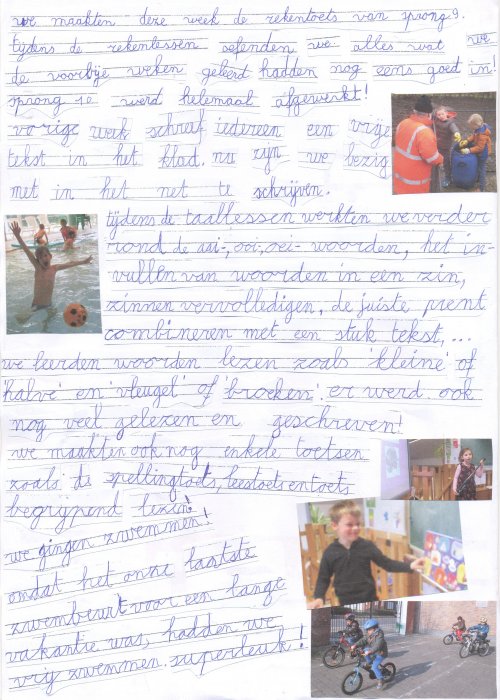 we maakten deze week de rekentoets van sprong 9.
tijdens de rekenlessen oefenden we alles wat we
de voorbije weken geleerd hadden nog eens goed in!
sprong 10 werd helemaal afgewerkt!
vorige week schreef iedereen een vrije
tekst in het klad. nu zijn we bezig
met in het net te schrijven.
tijdens de taallessen werkten we verder
rond de aai-, ooi-, oei- woorden, het in-
vullen van woorden in een zin,
zinnen vervolledigen, de juiste prent
combineren met een stuk tekst,...
we leerden woorden lezen zoals 'kleine' of
'halve' en 'vleugel' of 'broeken'. er werd ook
nog veel gelezen en geschreven!
we maakten ook nog enkele toetsen
zoals de spellingtoets, leestoets en toets
begrijpend lezen!
we gingen zwemmen!
omdat het onze laatste
zwembeurt voor een lange
vakantie was, hadden we
vrij zwemmen. superleuk!